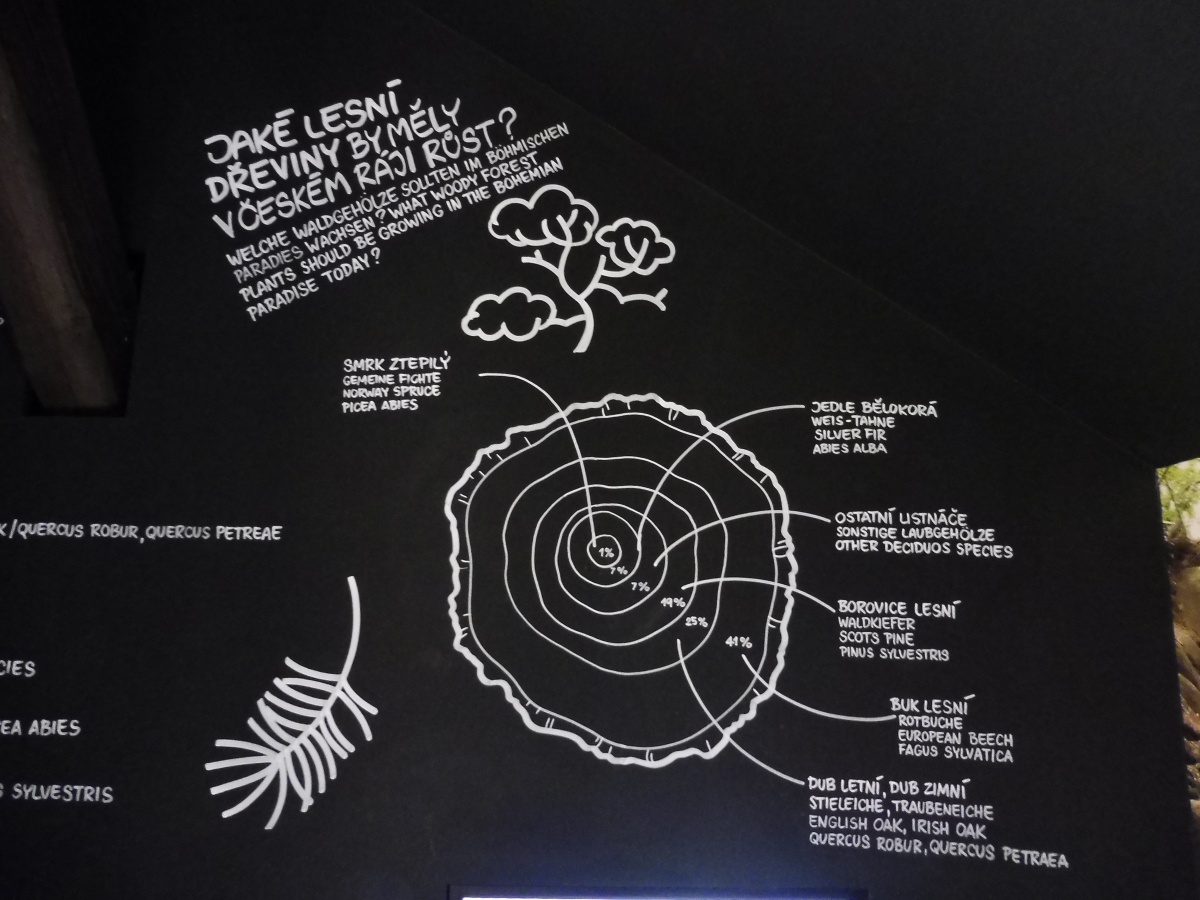 JAKÉ LESNÍ
DŘEVINY BY MĚLY
V ČESKÉM RÁJI RŮST?
WELCHE WALDGEHÖLZE SOLLTEN IM BÖHMISCHEN
PARADIES WACHSEN? WHAT WOODY FOREST
PLANTS SHOULD BE GROWING IN THE BOHEMIAN
PARADISE TODAY?
SMRK ZTEPILÝ
GEMEINE FICHTE
NORWAY SPRUCE
PICEA ABIES
JEDLE BĚLOKORÁ
WEIS-TAHNE
SILVER FIR
ABIES ALBA
OSTATNÍ LISTNÁČE
SONSTIGE LAUBGEHÖLZE
OTHER DECIDUOS SPECIES
1%
7%
7%
19%
25%
41%
BOROVICE LESNÍ
WALDKIEFER
SCOTS PINE
PINUS SYLVESTRIS
BUK LESNÍ
ROTBUCHE
EUROPEAN BEECH
FAGUS SYLVATICA
DUB LETNÍ, DUB ZIMNÍ
STIELEICHE, TRAUBENEICHE
ENGLISH OAK, IRISH OAK
QUERCUS ROBUR, QUERCUS PETRAEA
K/QUERCUS ROBUR, QUERCUS PETREAE
CIES
EA ABIES
S SYLVESTRIS